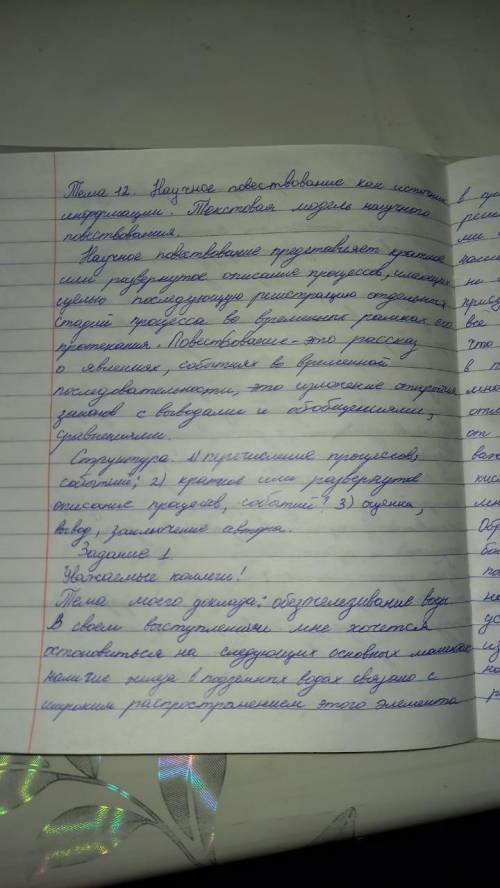 Тема 12. Научное повествование как источник
информации. Текстовая модель научного
повествования.
Научное повествование представляет краткое
или развернутое описание процессов, имеющих
целью последующую регистрацию отдельных
стадий процесса во временных рамках его
протекания. Повествование - это рассказ
о явлениях, событиях во временной
последовательности, это изложение открытия
законов с выводами и обобщениями,
сравнениями.
Структура: 1) перечисление процессов,
событий; 2) краткое или развернутое
описание процесов, событий; 3) оценка,
вывод, заключение автора.
Задание 1
Уважаемые коллеги!
Тема моего доклада: обезжелезивание воды
В своем выступлении мне хочется
остановиться на следующих основных моментах
наличие железа в подземных водах связано с
широким распространением этого элемента